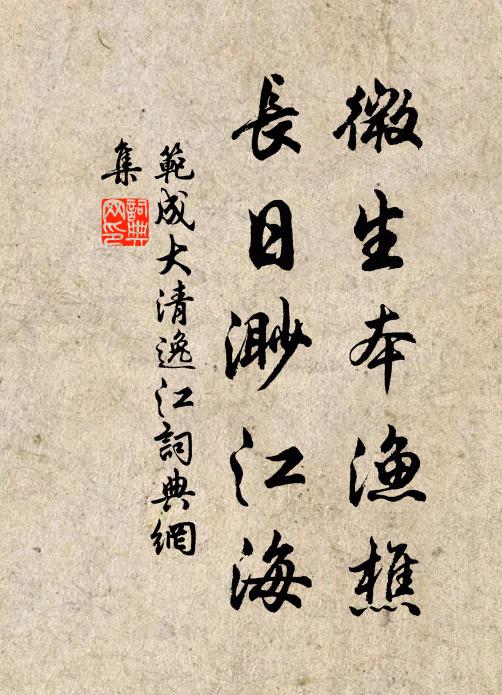 微生本漁樵
長日渺江海
範成大清逸江詞典網
集
詞典
网印